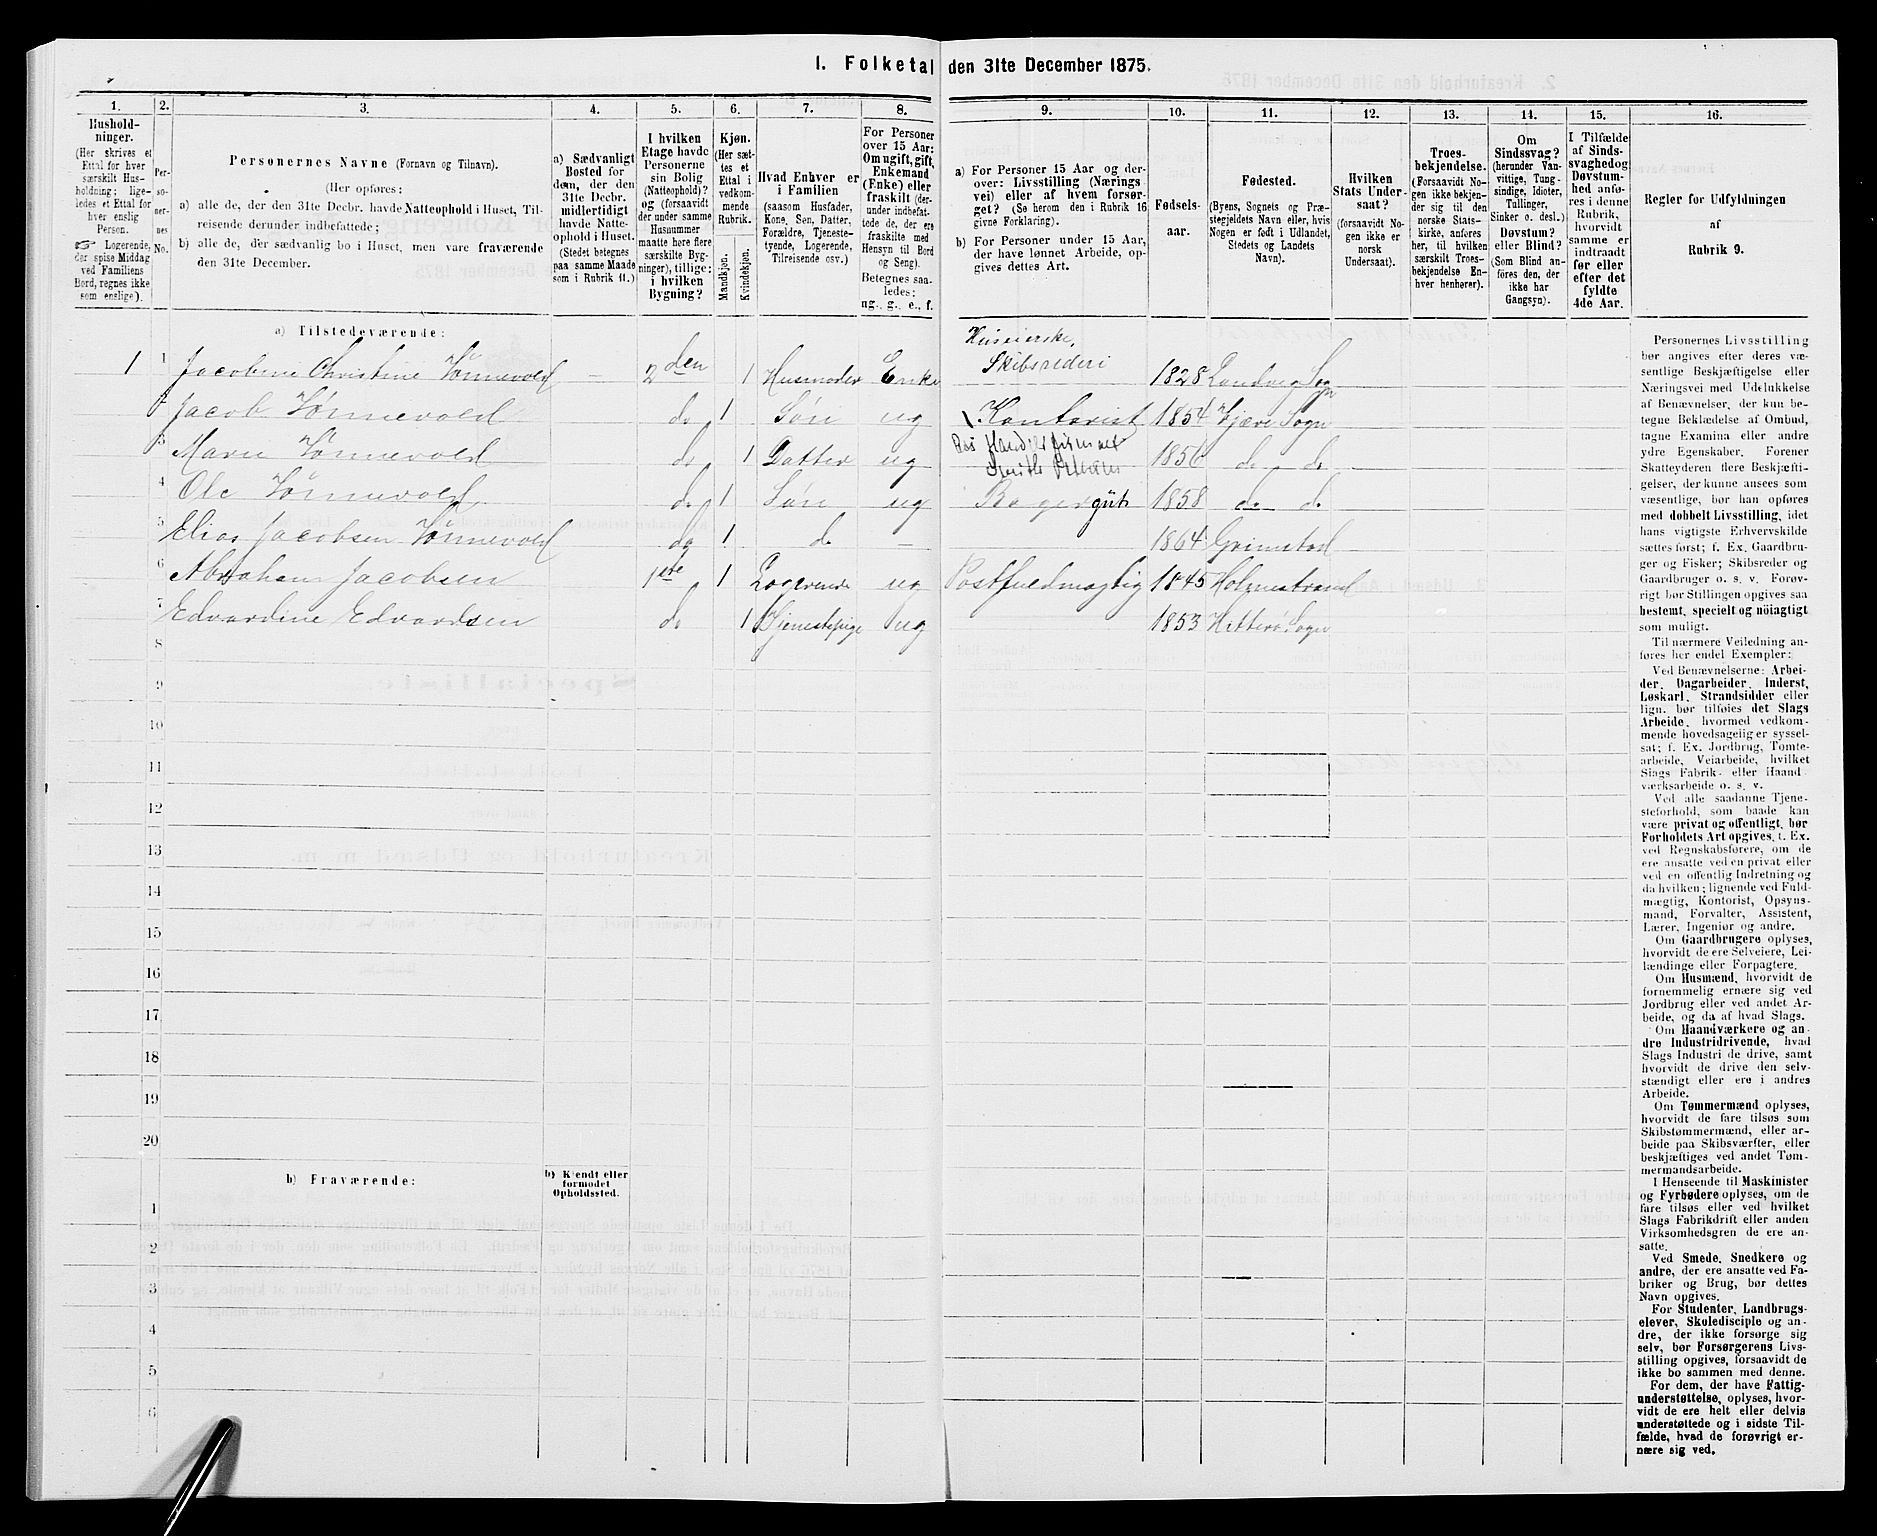 1. Folketal den 31te December 1875.
1.
2.
3.
4.
5.
6.
7.
8.
9.
10.
11.
12.
13.
14.
15.
16.
Hushold-
ninger.
(Her skrives et
Ettal for hver
særskilt Hus-
holdning; lige-
ledes et Ettal for
hver enslig
Person.
Logerende,
der spise Middag
ved Familiens
Bord, regnes ikke
som enslige).
Per-
so-
ner-
nes
No.
Personernes Navne (Fornavn og Tilnavn).
(Her opføres:
a) alle de, der den 31te Decbr. havde Natteophold i Huset, Til-
reisende derunder indbefattede;
b) alle de, der sædvanlig bo i Huset, men vare fraværende
den 31te December.
a) Sædvanligt
Bosted for
dem, der den
31te Decbr.
midlertidigt
havde Natte-
ophold i Huset.
(Stedet betegnes
paa samme Maade
som i Rubrik 11.)
I hvilken
Etage havde
Personerne
sin Bolig
(Natteophold)?
og (forsaavidt
der under samme
Husnummer
maatte høre flere
særskilte Byg-
ninger), tillige:
i hvilken
Bygning?
Kjøn.
(Her sæt-
tes et
Ettal i
vedkom-
mende
Rubrik.
Mandkjøn.
Kvindekjøn.
Hvad Enhver er
i Familien
(saasom Husfader,
Kone, Søn, Datter,
Forældre, Tjeneste-
tyende, Logerende,
Tilreisende osv.)
For Personer
over 15 Aar:
Om ugift, gift,
Enkemand
(Enke) eller
fraskilt (der-
under indbefat-
tede de, der ere
fraskilte med
Hensyn til Bord
og Seng).
Betegnes saa-
ledes:
ug., g., e., f.
a) For Personer 15 Aar og der-
over: Livsstilling (Nærings-
vei) eller af hvem forsør-
get? (Se herom den i Rubrik 16
givne Forklaring).
b) For Personer under 15 Aar,
der have lønnet Arbeide, op-
gives dettes Art.
Fødsels-
aar.
Fødested.
(Byens, Sognets og Præ-
stegjeldets Navn eller, hvis
Nogen er født i Udlandet,
Stedets og Landets
Navn).
I hvilken
Stats Under-
saat?
(forsaavidt No-
gen ikke er
norsk
Undersaat).
Troes-
bekjendelse.
(Forsaavidt No-
gen ikke bekjen-
der sig til den
norske Stats-
kirke, anføres
her, til hvilken
særskilt Troes-
bekjendelse En-
hver henhører).
Om
Sindssvag?
(herunder Van-
vittige, Tung-
sindige, Idioter,
Tullinger,
Sinker o. desl.)
Døvstum?
eller Blind?
(Som Blind an-
føres den, der
ikke har
Gangsyn).
I Tilfælde
af Sinds-
svaghed og
Døvstum-
hed anfø-
res i denne
Rubrik,
hvorvidt
samme er
indtraadt
før eller
efter det
fyldte
4de Aar.
Regler for Udfyldningen
af
Rubrik 9.
a) Tilstedeværende:
1 1 Jacobine Christine Tønnevold – 2den 1 Husmoder Enke Huseierske, Skibsrederi 1828 Landvig Sogn
2 Jacob Tønnevold do 1 Søn ug Kontorist 1854 Fjære Sogn
3 Marie Tønnevold do 1 Datter ug 1856 do do
4 Ole Tønnevold do 1 Søn ug Bagergut 1858 do do
5 Elias Jacobsen Tønnevold do 1 do – 1864 Grimstad
6 Abraham Jacobsen 1ste 1 Logerende ug Postfuldmægtig 1845 Holmestrand
7 Edvardine Edvardsen do 1 Tjenestepige ug 1853 Hitterø Sogn
8
9
10
11
12
13
14
15
16
17
18
19
20
b) Fraværende:
b) Kjendt eller
formodet
Opholdssted.
1
2
3
4
5
6
Personernes Livsstilling
bør angives efter deres væ-
sentlige Beskjæftigelse eller
Næringsvei med Udelukkelse
af Benævnelser, der kun be-
tegne Beklædelse af Ombud,
tagne Examina eller andre
ydre Egenskaber. Forener
Skatteyderen flere Beskjæfti-
gelser, der kunne ansees som
væsentlige, bør han opføres
med dobbelt Livsstilling, idet
hans vigtigste Erhvervskilde
sættes først; f. Ex. Gaardbru-
ger og Fisker; Skibsreder og
Gaardbruger o. s. v. Forøv-
rigt bør Stillingen opgives saa
bestemt, specielt og nøiagtigt
som muligt.
Til nærmere Veiledning an-
føres her endel Exempler:
Ved Benævnelserne: Arbei-
der, Dagarbeider, Inderst,
Løskarl, Strandsidder eller
lign. bør tilføies det Slags
Arbeide, hvormed vedkom-
mende hovedsagelig er syssel-
sat; f. Ex. Jordbrug, Tomte-
arbeide, Veiarbeide, hvilket
Slags Fabrik- eller Haand-
værksarbeide o. s. v.
Ved alle saadanne Tjene-
steforhold, som baade kan
være privat og offentligt, bør
Forholdets Art opgives, f. Ex.
ved Regnskabsførere, om de
ere ansatte ved en privat eller
ved en offentlig Indretning og
da hvilken; lignende ved Fuld-
mægtig, Kontorist, Opsyns-
mand, Forvalter, Assistent,
Lærer, Ingeniør og andre.
Om Gaardbrugere oplyses,
hvorvidt de ere Selveiere, Lei-
lændinge eller Forpagtere.
Om Husmænd, hvorvidt de
fornemmelig ernære sig ved
Jordbrug eller ved andet Ar-
beide, og da af hvad Slags.
Om Haandværkere og an-
dre Industridrivende, hvad
Slags Industri de drive, samt
hvorvidt de drive den selv-
stændigt eller ere i andres
Arbeide.
Om Tømmermænd oplyses,
hvorvidt de fare tilsøs som
Skibstømmermænd, eller ar-
beide paa Skibsværfter, eller
beskjæftiges ved andet Tøm-
mermandsarbeide.
I Henseende til Maskinister
og Fyrbødere oplyses, om de
fare tilsøs eller ved hvilket
Slags Fabrikdrift eller anden
Virksomhedsgren de ere an-
satte.
Ved Smede, Snedkere og
andre, der ere ansatte ved Fa-
briker og Brug, bør dettes
Navn opgives.
For Studenter, Landbrugs-
elever, Skoledisciple og an-
dre, der ikke forsørge sig
selv, bør Forsørgerens Livs-
stilling opgives, forsaavidt de
ikke bo sammen med denne.
For dem, der have Fattig-
understøttelse, oplyses, hvor-
vidt de ere helt eller delvis
understøttede og i sidste Til-
fælde, hvad de forøvrigt er-
nære sig ved.